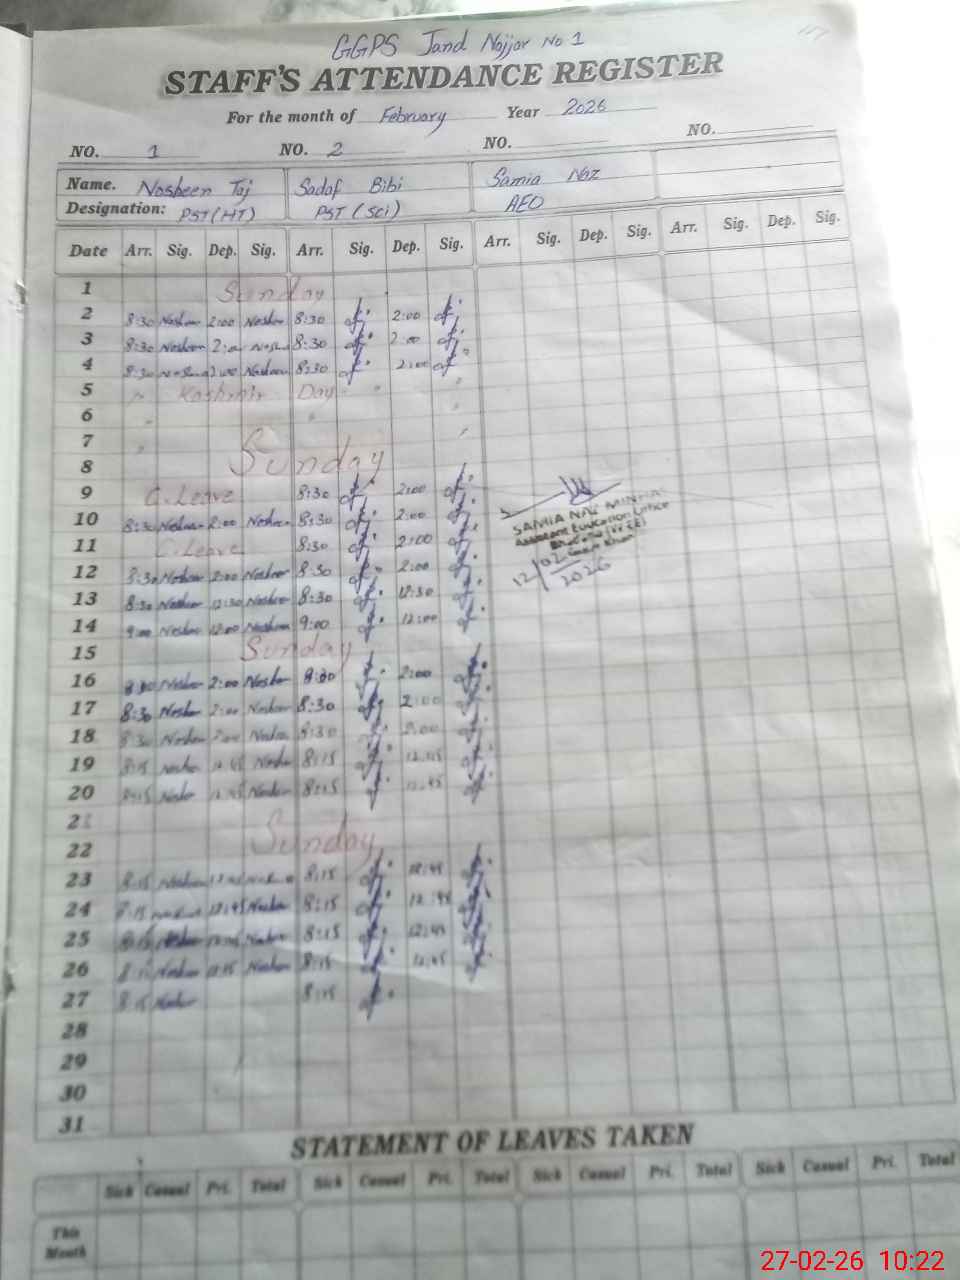 GGPS Jand Najjar No 1
STAFF'S ATTENDANCE REGISTER
For the month of February Year 2026
NO. 1 NO. 2 NO. NO.
Name. Nosheen Taj Sadaf Bibi Samia Naz
Designation: PST (HT) PST (Sci) AEO
Date Arr. Sig. Dep. Sig. Arr. Sig. Dep. Sig. Arr. Sig. Dep. Sig. Arr. Sig. Dep. Sig.
1 Sunday
2 8:30 Nosheen 2:00 Nosheen 8:30 2:00
3 8:30 Nosheen 8:30 2:00
4 8:30 2:00 Nosheen 8:30 2:00
5 " Kashmir Day " "
6 " " "
7 " "
8 Sunday
9 C.Leave 8:30 2:00
10 8:30 Nosheen 2:00 Nosheen 8:30 2:00
SAMIA NAZ MINHAS
Assistant Education Officer
11 C.Leave 8:30 2:00
12 8:30 Nosheen 2:00 Nosheen 8:30 2:00
12/02/2026
13 8:30 Nosheen 12:30 Nosheen 8:30 12:30
14 9:00 Nosheen 12:00 Nosheen 9:00 12:00
15 Sunday
16 Nosheen 2:00 Nosheen 8:30 2:00
17 8:30 Nosheen 2:00 Nosheen 8:30 2:00
18 8:30 Nosheen 2:00 Nosheen 8:30 2:00
19 8:15 Nosheen 12:45 Nosheen 8:15 12:45
20 8:15 Nosheen 12:45 Nosheen 8:15 12:45
21
22 Sunday
23 8:15 Nosheen 12:45 8:15 12:45
24 8:15 12:45 Nosheen 8:15 12:45
25 8:15 Nosheen Nosheen 8:15 12:45
26 Nosheen Nosheen 8:15 12:45
27 8:15 Nosheen 8:15
28
29
30
31
STATEMENT OF LEAVES TAKEN
Sick Casual Pri. Total Sick Casual Pri. Total Sick Casual Pri. Total Sick Casual Pri. Total
This
Month
27-02-26 10:22